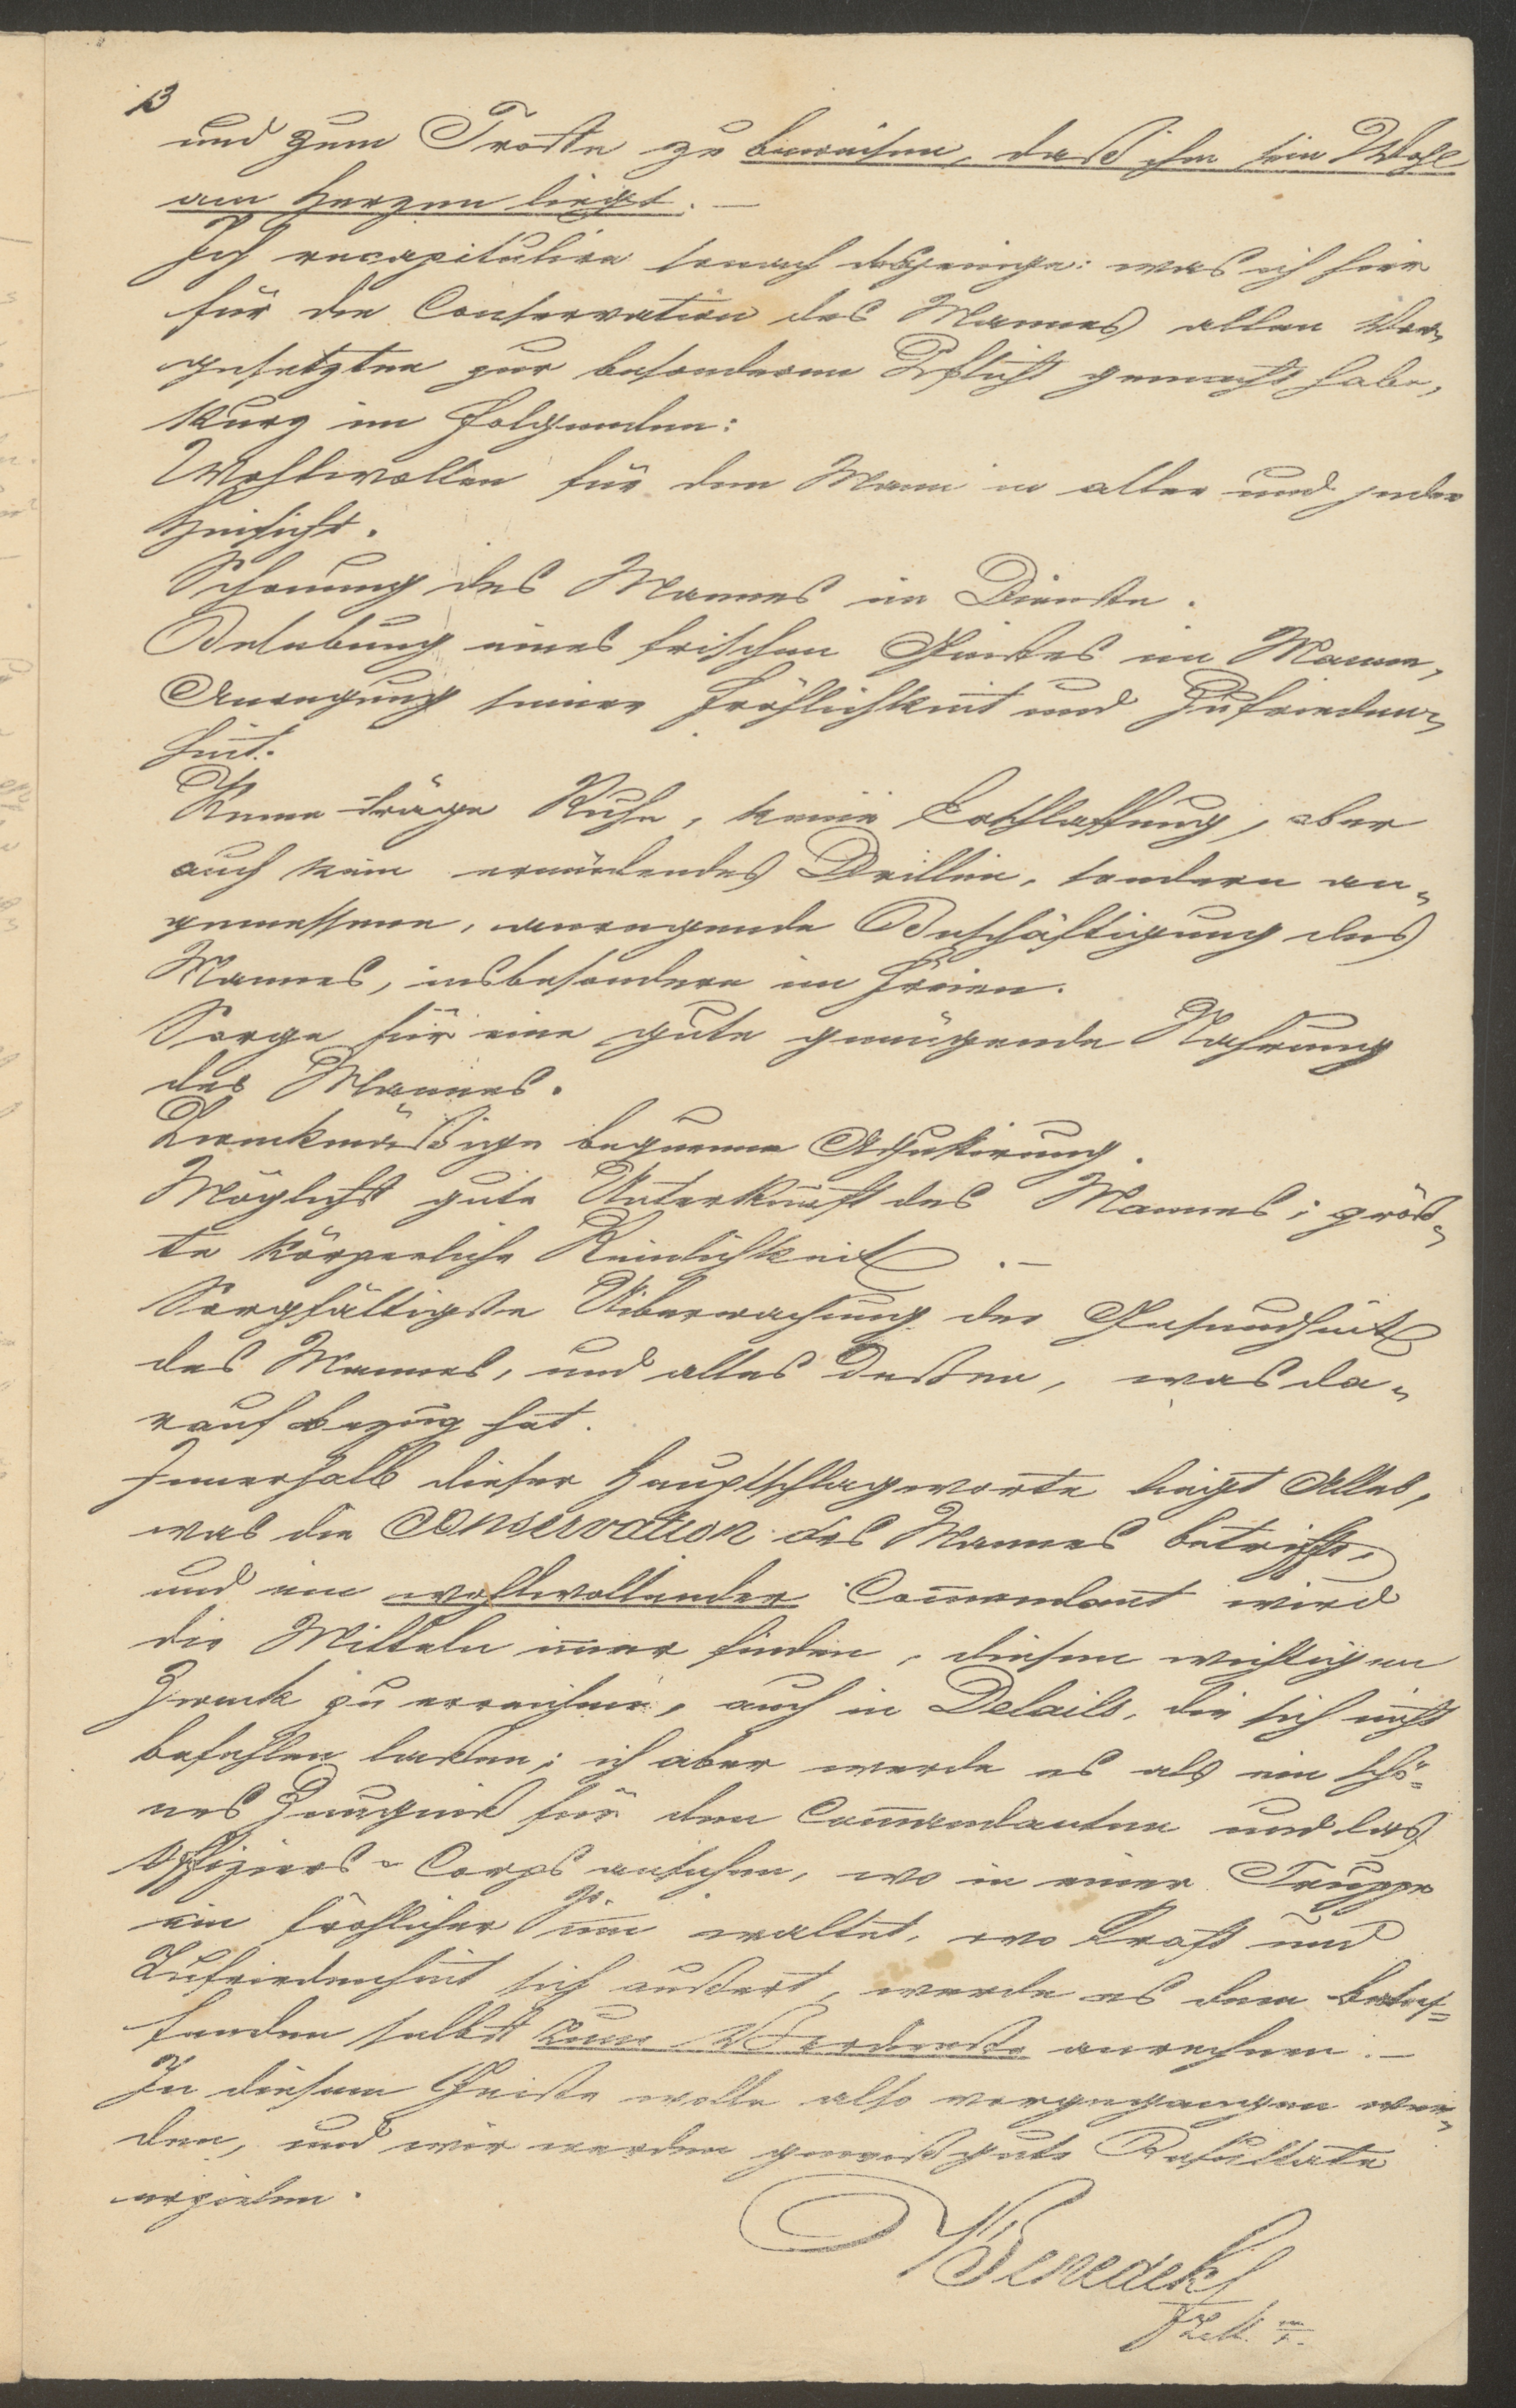 13
und zum Troste zu beweisen, daß ihm sein Wohl
am Herzen liegt. —
Ich recapitulire sonach dasjenige: was ich hier
für die Conservation des Mannes allen Vor„
gesetzten zur besonderen Pflicht gemacht habe,
kurz im Folgenden:
Wohlwollen für den Mann in aller und jeder
Hinsicht.
Schonung des Mannes im Dienste.
Belebung eines frischen Geistes im Manne,
Anregung seiner Fröhlichkeit und Zufrieden„
heit.
Keine träge Ruhe, keine Erschlaffung, aber
auch kein ermüdendes Drillen, sondern an„
gemessene, anregende Beschäftigung des
Mannes, insbesondere im Freien.
Sorge für eine gute genügende Nahrung
des Mannes.
Zweckmäßige bequeme Adjustirung.
Möglichst gute Unterkunft des Mannes; größ„
te körperliche Reinlichkeit. —
Sorgfältigste Uiberwachung der Gesundheit
des Mannes, und alles deßen, was da„
rauf Bezug hat.
Innerhalb dieser Hauptschlagworte liegt Alles,
was die Conservation des Mannes betrifft,
und ein wohlwollender Commandant wird
die Mitteln immer finden, diesen wichtigen
Zweck zu erreichen, auch in Details, die sich nicht
befehlen laßen; ich aber werde es als ein schö„
nes Zeugniß für den Commandanten und das
Offiziers„Corps ansehen, wo in einer Truppe
ein fröhlicher Sinn waltet, wo Kraft und
Zufriedenheit sich äußert, werde es dem betref„
fenden selbst zum Verdienste anrechnen. —
In diesem Geiste wolle also vorgegangen wer„
den, und wir werden gewiß gute Resultate
erzielen.
Benedek
FZM.